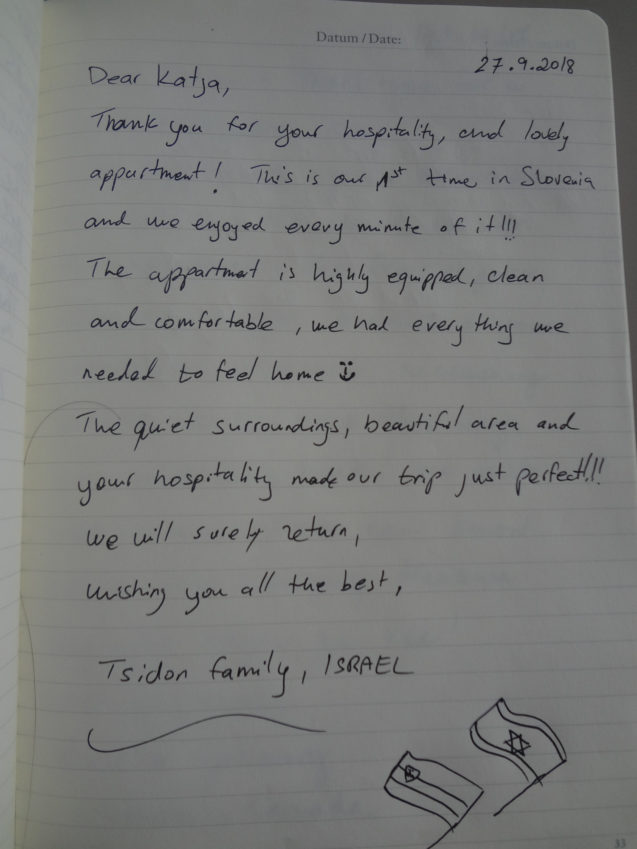 Datum / Date:
27.9.2018
Dear Katja,
Thank you for your hospitality, and lovely
appartment! This is our 1st time in Slovenia
and we enjoyed every minute of it!!!
The appartment is highly equipped, clean
and comfortable, we had every thing we
needed to feel home
The quiet surroundings, beautiful area and
your hospitality made our trip just perfect!!!
We will surely return,
wishing you all the best,
Tsidon family, ISRAEL
33